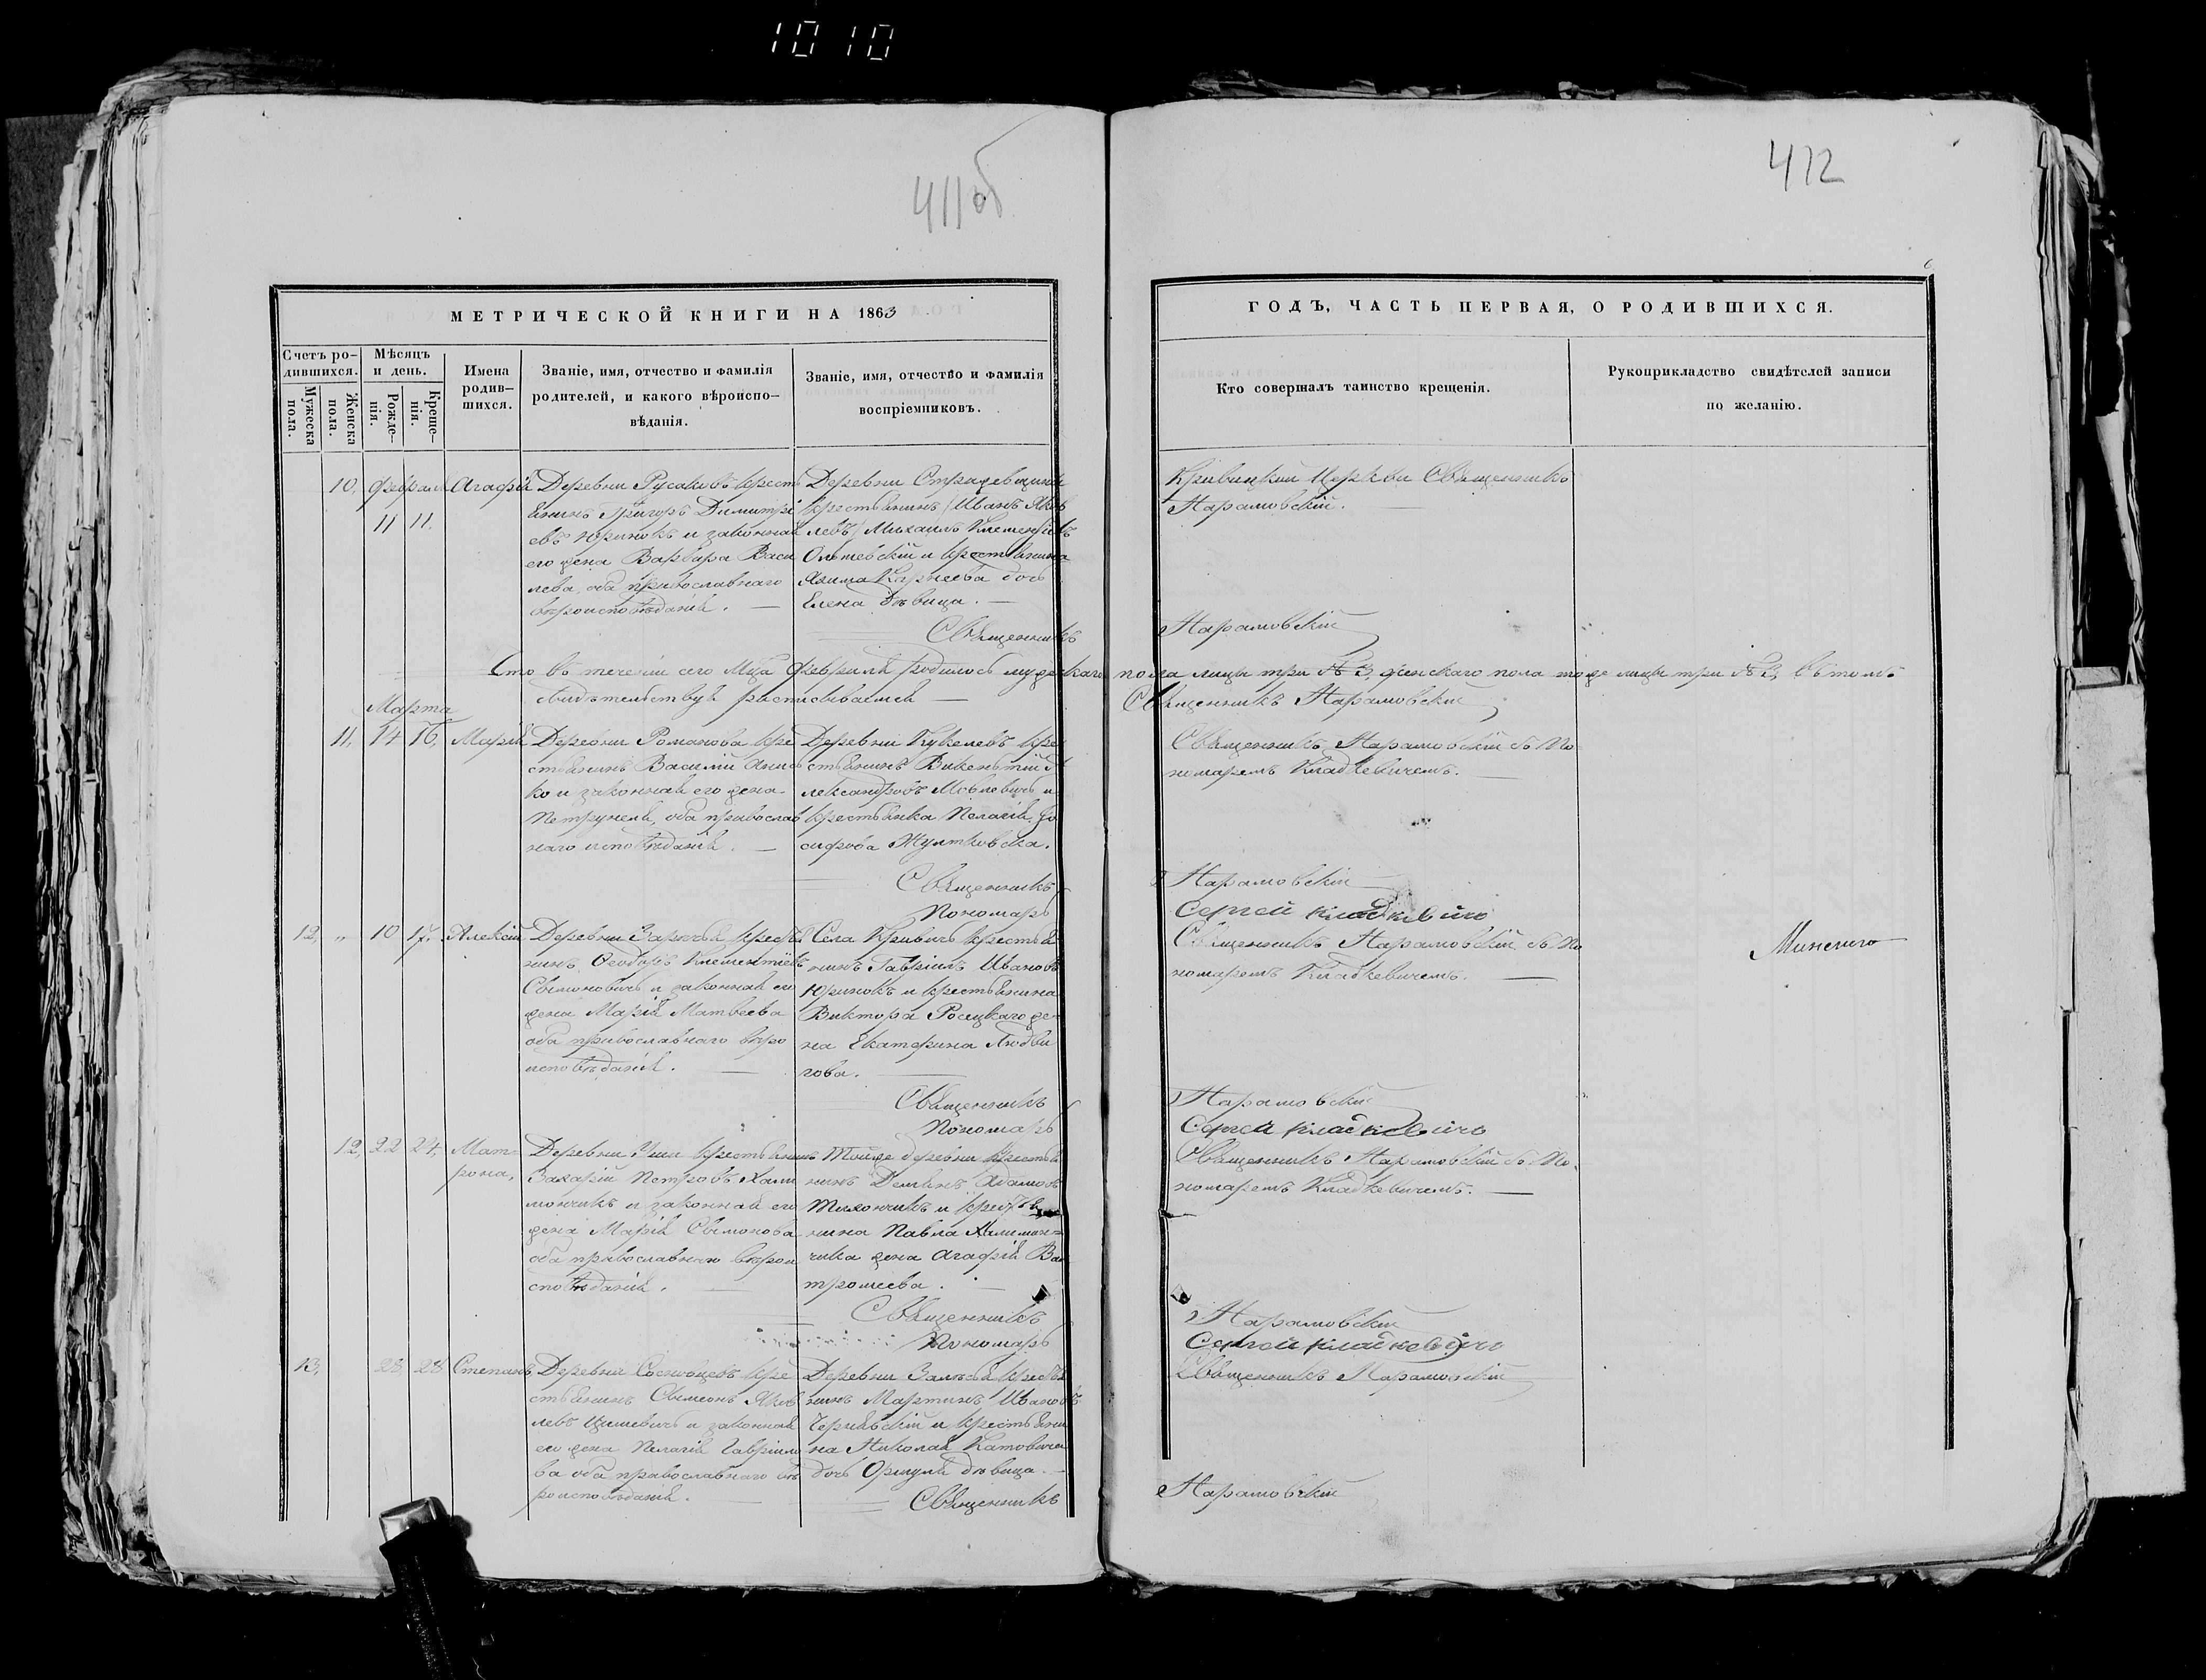 1010
411об
412
6
МЕТРИЧЕСКОЙ КНИГИ НА 1863
ГОДЪ, ЧАСТЬ ПЕРВАЯ, О РОДИВШИХСЯ.
Счетъ ро-
дившихся.
Мужеска
пола.
Женска
пола.
Мѣсяцъ
и день.
Рожде-
нія.
Креще-
нія.
Имена
родив-
шихся.
Званіе, имя, отчество и фамилія
родителей, и какого вѣроиспо-
вѣданія.
Званіе, имя, отчество и фамилія
воспріемниковъ.
Кто совершалъ таинство крещенія.
Рукоприкладство свидѣтелей записи
по желанію.
10,
Февраля
11 11.
Агафія
Деревни Русаковъ крестъ
янинъ Григоръ Димитрі
евъ Юринокъ и законная
его жена Варвара Васи
лева, оба православнаго
вѣроисповѣданія. —
Деревни
крестьянинъ (Иванъ Яков
левъ) Михаилъ Клементіевъ
и крестьянина
Якима Карнеева дочь
Елена дѣвица. —
Священникъ
Кривицкой Церкви Священникъ
Нарановскій. —
Нарановскій
Что въ теченіи сего Мца Февраля родилось мужскаго пола лицъ три № 3, женскаго пола тоже лицъ три № 3, въ томъ
свидѣтельствуя расписываемся —
Священникъ Нарановскій
Марта
11, 14 16,
Марія
Деревни Романова кре
стьянинъ Василій
ко и законная его жена
Петрунеля, оба православ
наго исповѣданія. —
Деревни кре
стьянинъ Викентій А
лександровъ и
крестьянка Пелагія Іо
сифова
Священникъ
Пономарь
Священникъ Нарановскій съ По-
номаремъ Кладкевичемъ. —
Нарановскій
Сергей Кладкевичъ
12, " 10 17.
Алексій
Деревни Зарѣчья крестья
нинъ Ѳеодоръ Клементіевъ
Сымоновичъ и законная его
жена Марія Матвеева
оба православнаго вѣро
исповѣданія. —
Села Кривичъ крестья
нинъ Гавріилъ Ивановъ
Юринокъ и крестьянина
Виктора Росецкаго же-
на Екатерина Людви
гова. —
Священникъ
Пономарь
Священникъ Нарановскій съ По
номаремъ Кладкевичемъ. —
Нарановскій
Сергей Кладкевичъ
12, 22 24,
Мат-
рона,
Деревни Уши крестьянинъ
Захарій Петровъ Хали
мончикъ и законная его
жена Марія Сымонова
оба православнаго вѣрои
сповѣданія. —
Тойже деревни крестья
нинъ Адамовъ
и крестья
нина Павла Халимон-
чика жена Агафія Вар
тромеева. —
Священникъ
Пономарь
Священникъ Нарановскій съ По-
номаремъ Кладкевичемъ. —
Нарановскій
Сергей Кладкевичъ
13, 28, 28
Степанъ
Деревни кре
стьянинъ Сымеонъ Яков
левъ и законная
его жена Пелагія Гавріило
ва оба православнаго вѣ
роисповѣданія. —
Деревни Залѣсья крестья
нинъ Мартинъ Ивановъ
Чернявскій и крестьяни
на Николая
дочь Оршуля дѣвица. —
Священникъ
Священникъ Нарановскій
Нарановскій